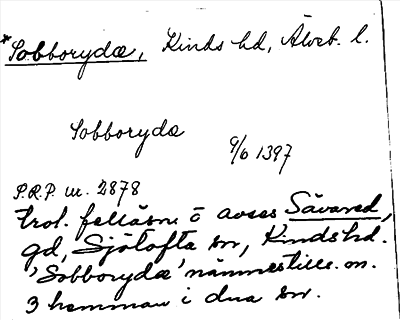 *Sobborydæ, Kinds hd, Älvsb. l.
Sobborydæ
9/6 1397
S.R.P. nr. 2878
trol. felläsn. o avses Sävared,
gd, Sjötofta sn, Kinds hd.
'Sobborydæ' nämnes tills. m.
3 hemman i dna sn.